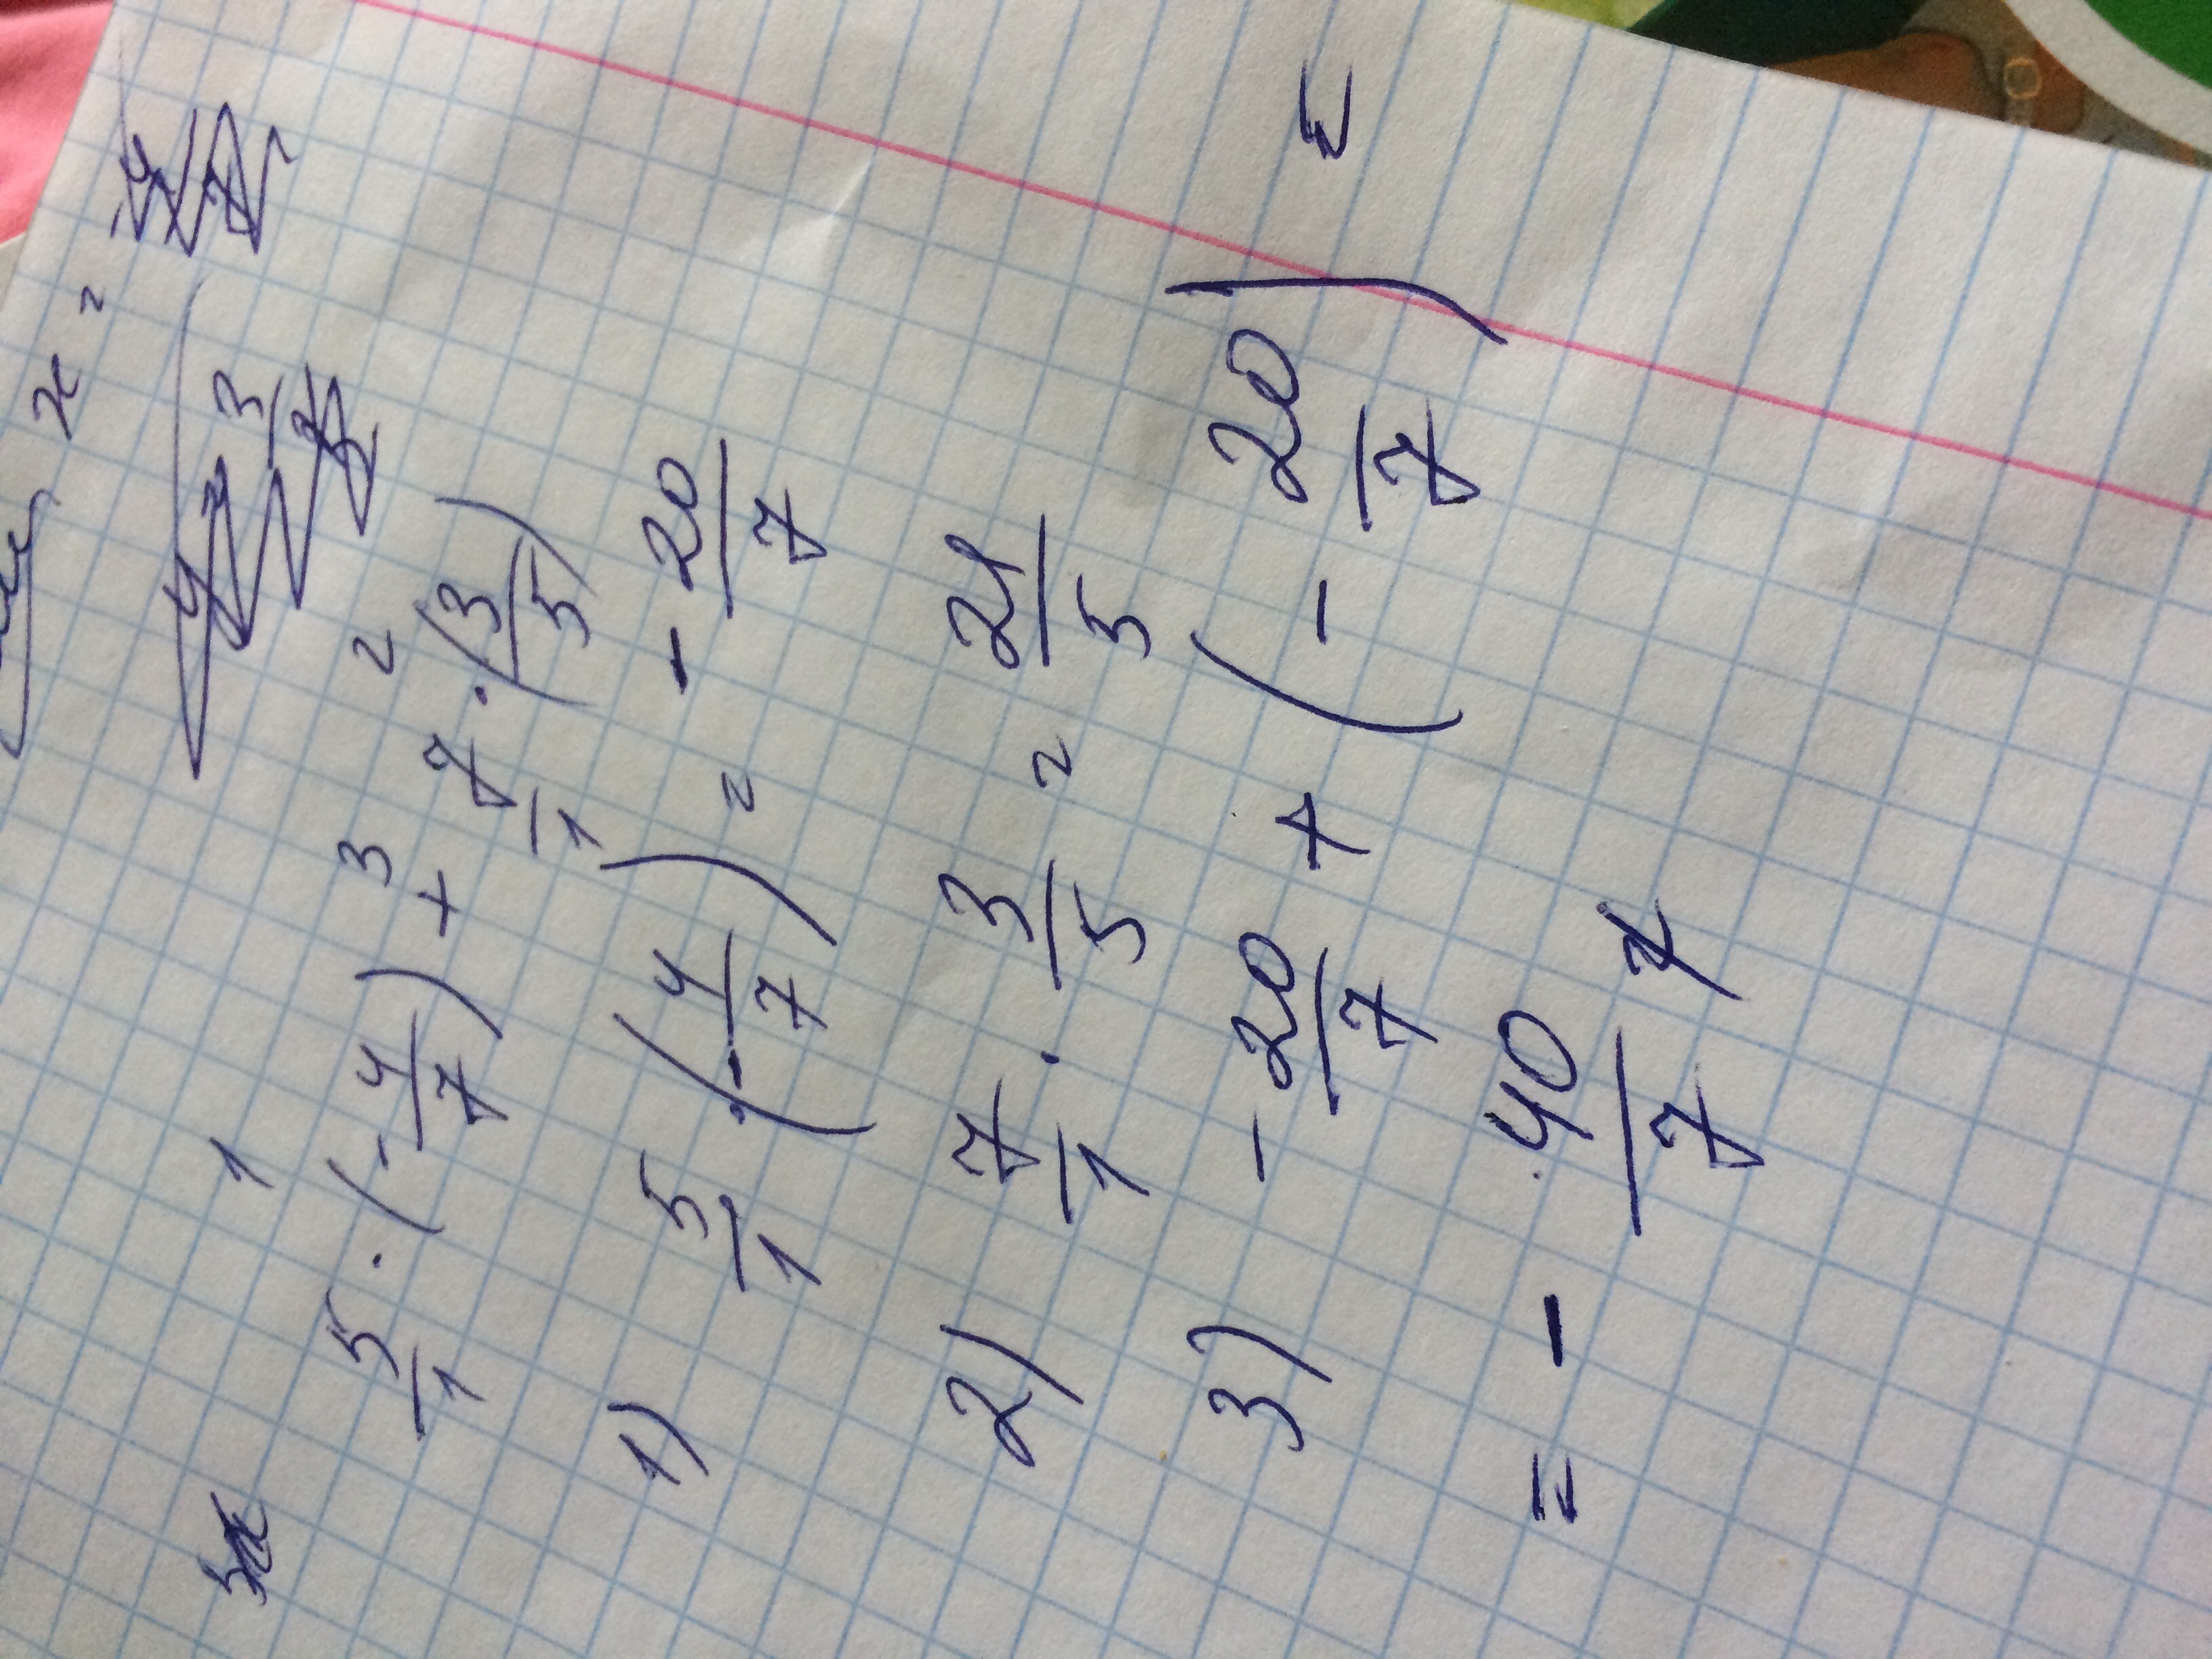 x =
5/1 · (-4/7) + 7/1 · (3/5)
1 3 2
1) 5/1 · (-4/7) = - 20/7
2) 7/1 · 3/5 = 21/5
3) - 20/7 + (- 20/7) =
= - 40/7